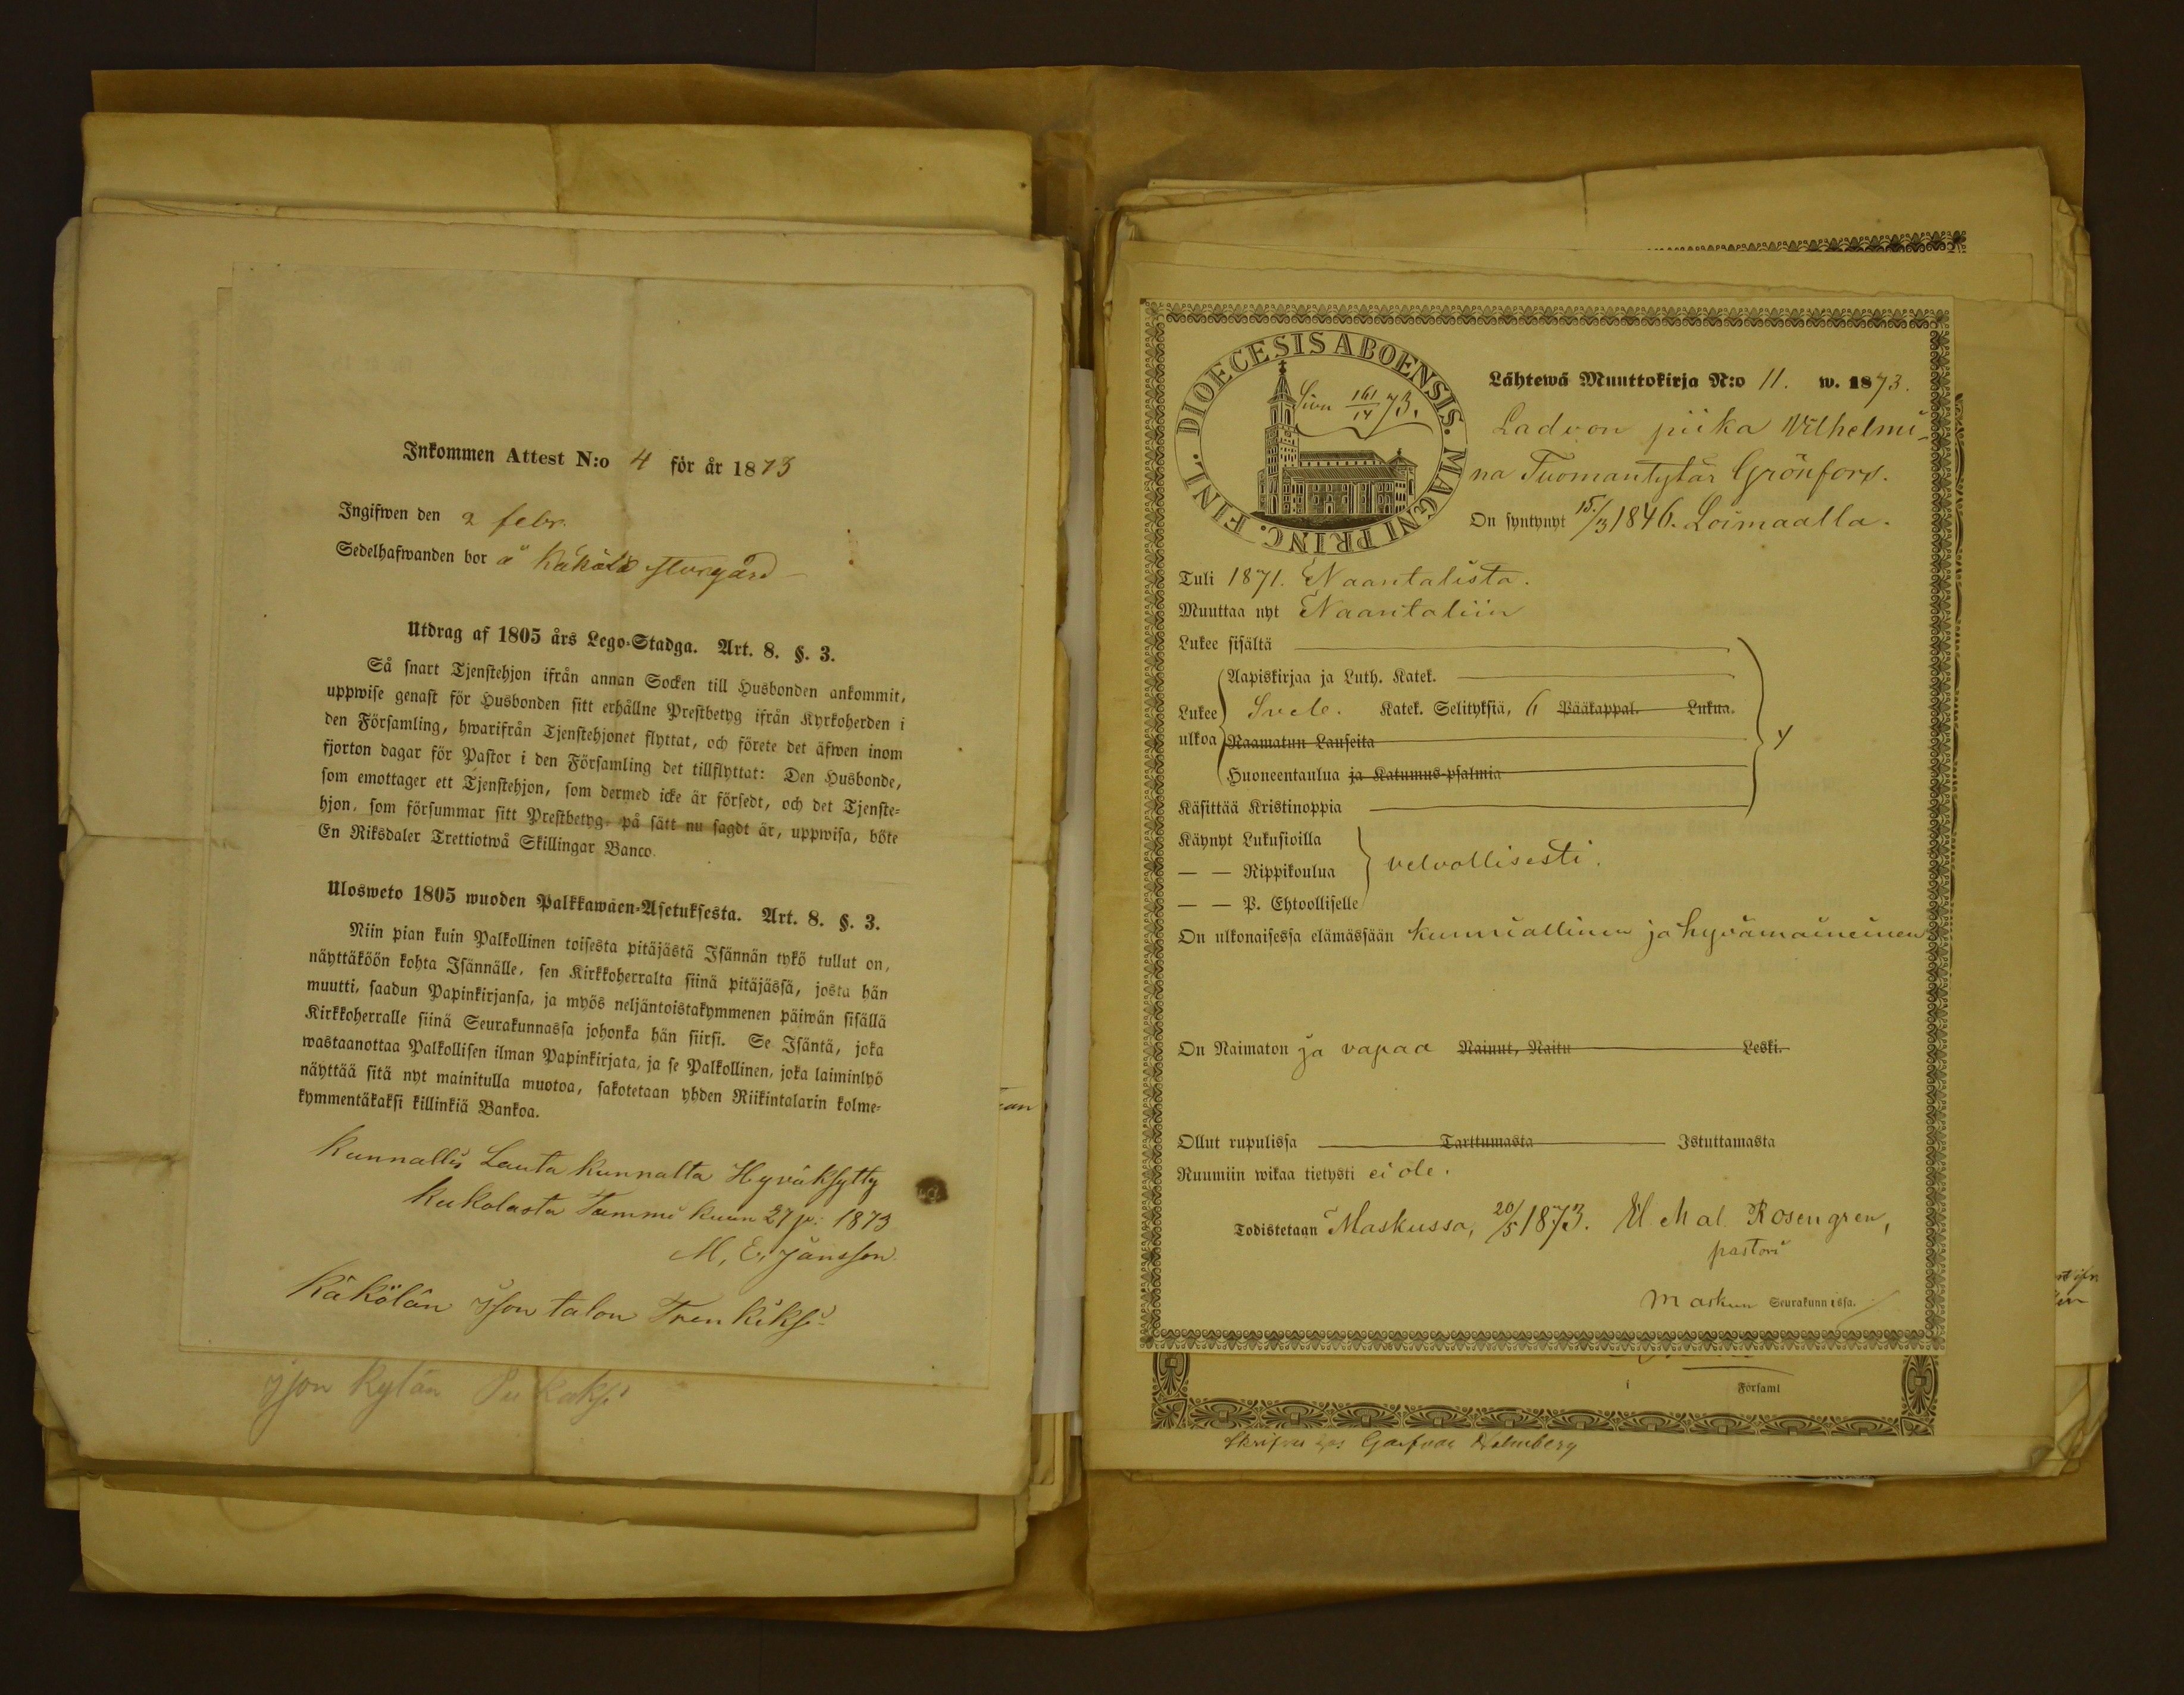 Inkommen Attest N:o 4 för år 1873
Ingifwen den 2 febr.
Sedelhafwanden bor å Käkölä storgård
Utdrag af 1805 års Lego-Stadga. Art. 8. §. 3.
Så snart Tjenstehjon ifrån annan Socken till Husbonden ankommit,
uppwise genast för Husbonden sitt erhållne Prestbetyg ifrån Kyrkoherden i
den Församling, hwarifrån Tjenstehjonet flyttat, och förete det äfwen inom
fjorton dagar för Pastor i den Församling det tillflyttat: Den Husbonde,
som emottager ett Tjenstehjon, som dermed icke är försedt, och det Tjenste-
hjon, som försummar sitt Prestbetyg, på sätt nu sagdt är, uppwisa, böte
En Riksdaler Trettiotwå Skillingar Banco.
Ulosweto 1805 wuoden Palkkawäen-Asetuksesta. Art. 8. §. 3.
Niin pian kuin Palkollinen toisesta pitäjästä Isännän tykö tullut on,
näyttäköön kohta Isännälle, sen Kirkkoherralta siinä pitäjässä, josta hän
muutti, saadun Papinkirjansa, ja myös neljäntoistakymmenen päiwän sisällä
Kirkkoherralle siinä Seurakunnassa johonka hän siirsi. Se Isäntä, joka
wastaanottaa Palkollisen ilman Papinkirjata, ja se Palkollinen, joka laiminlyö
näyttää sitä nyt mainitulla muotoa, sakotetaan yhden Riikintalarin kolme-
kymmentäkaksi killinkiä Bankoa.
Kunnallis Lauta kunnalta Hyväksytty
Kukolasta Tammi kuun 27 p: 1873
M, E, Jansson
Käkölän Ison talon Trenkiksi
Ison kylän Piikaksi
DIOECESIS ABOENSIS. MAGNI PRINC. FINL.
Sivu 161/14 73.
Lähtewä Muuttokirja N:o 11. w. 1873.
Ladvon piika Vilhelmi-
na Tuomantytär Grönfors.
On syntynyt 15/3 1846. Loimaalla.
Tuli 1871. Naantalista.
Muuttaa nyt Naantaliin
Lukee sisältä
Aapiskirjaa ja Luth. Katek.
Lukee Sveb. Katek. Selityksiä, 6 Pääkappal. Lukua.
ulkoa Raamatun Lauseita
Huoneentaulua ja Katumus-psalmia
Käsittää Kristinoppia
Käynyt Lukusioilla
— — Rippikoulua velvollisesti.
— — P. Ehtoolliselle
On ulkonaisessa elämässään kunniallinen ja hyvämaineinen
On Naimaton ja vapaa Nainut, Naitu Leski.
Ollut rupulissa Tarttumasta Istuttamasta
Ruumiin wikaa tietysti ei ole.
Todistetaan Maskussa, 20/5 1873. El. Mal. Rosengren,
pastori
Maskun Seurakunnassa.
Församl